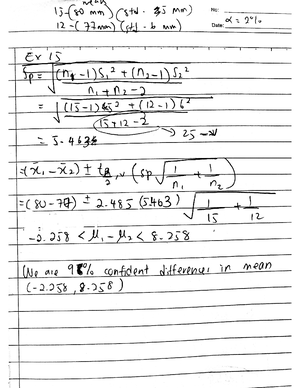 mean
15-(80 mm) (std - 35 mm)
12-(77mm) (std - 6 mm)
No:
Date: α = 2%
Ex 15
Sp = √((n₁-1)S₁² + (n₂-1)S₂² / n₁ + n₂ - 2)
= √((15-1)5² + (12-1)6² / 15+12-2)
→ 25 - v
= 5.463
=(x̄₁-x̄₂) ± tα/2,v (Sp √(1/n₁ + 1/n₂))
=(80-77) ± 2.485 (5.463) √(1/15 + 1/12)
-2.258 < μ₁-μ₂ < 8.258
We are 98% confident difference in mean
(-2.258, 8.258)